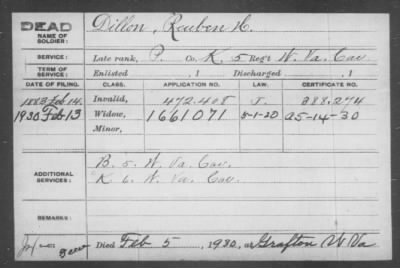 DEAD
NAME OF SOLDIER: Dillon, Reuben H.
SERVICE: Late rank, P. Co. K, 5 Reg't W. Va. Cav.
TERM OF SERVICE: Enlisted , 1 Discharged , 1
DATE OF FILING. CLASS. APPLICATION NO. LAW. CERTIFICATE NO.
1883 Feb 14. Invalid, 472.408 388.274
1930 Feb 13 Widow, 1661071 5-1-20 A5-14-30
Minor,
ADDITIONAL SERVICES:
B. 5. W. Va. Cav.
K 6. W. Va. Cav.
REMARKS:
Died Feb 5, 1930, at Grafton W Va